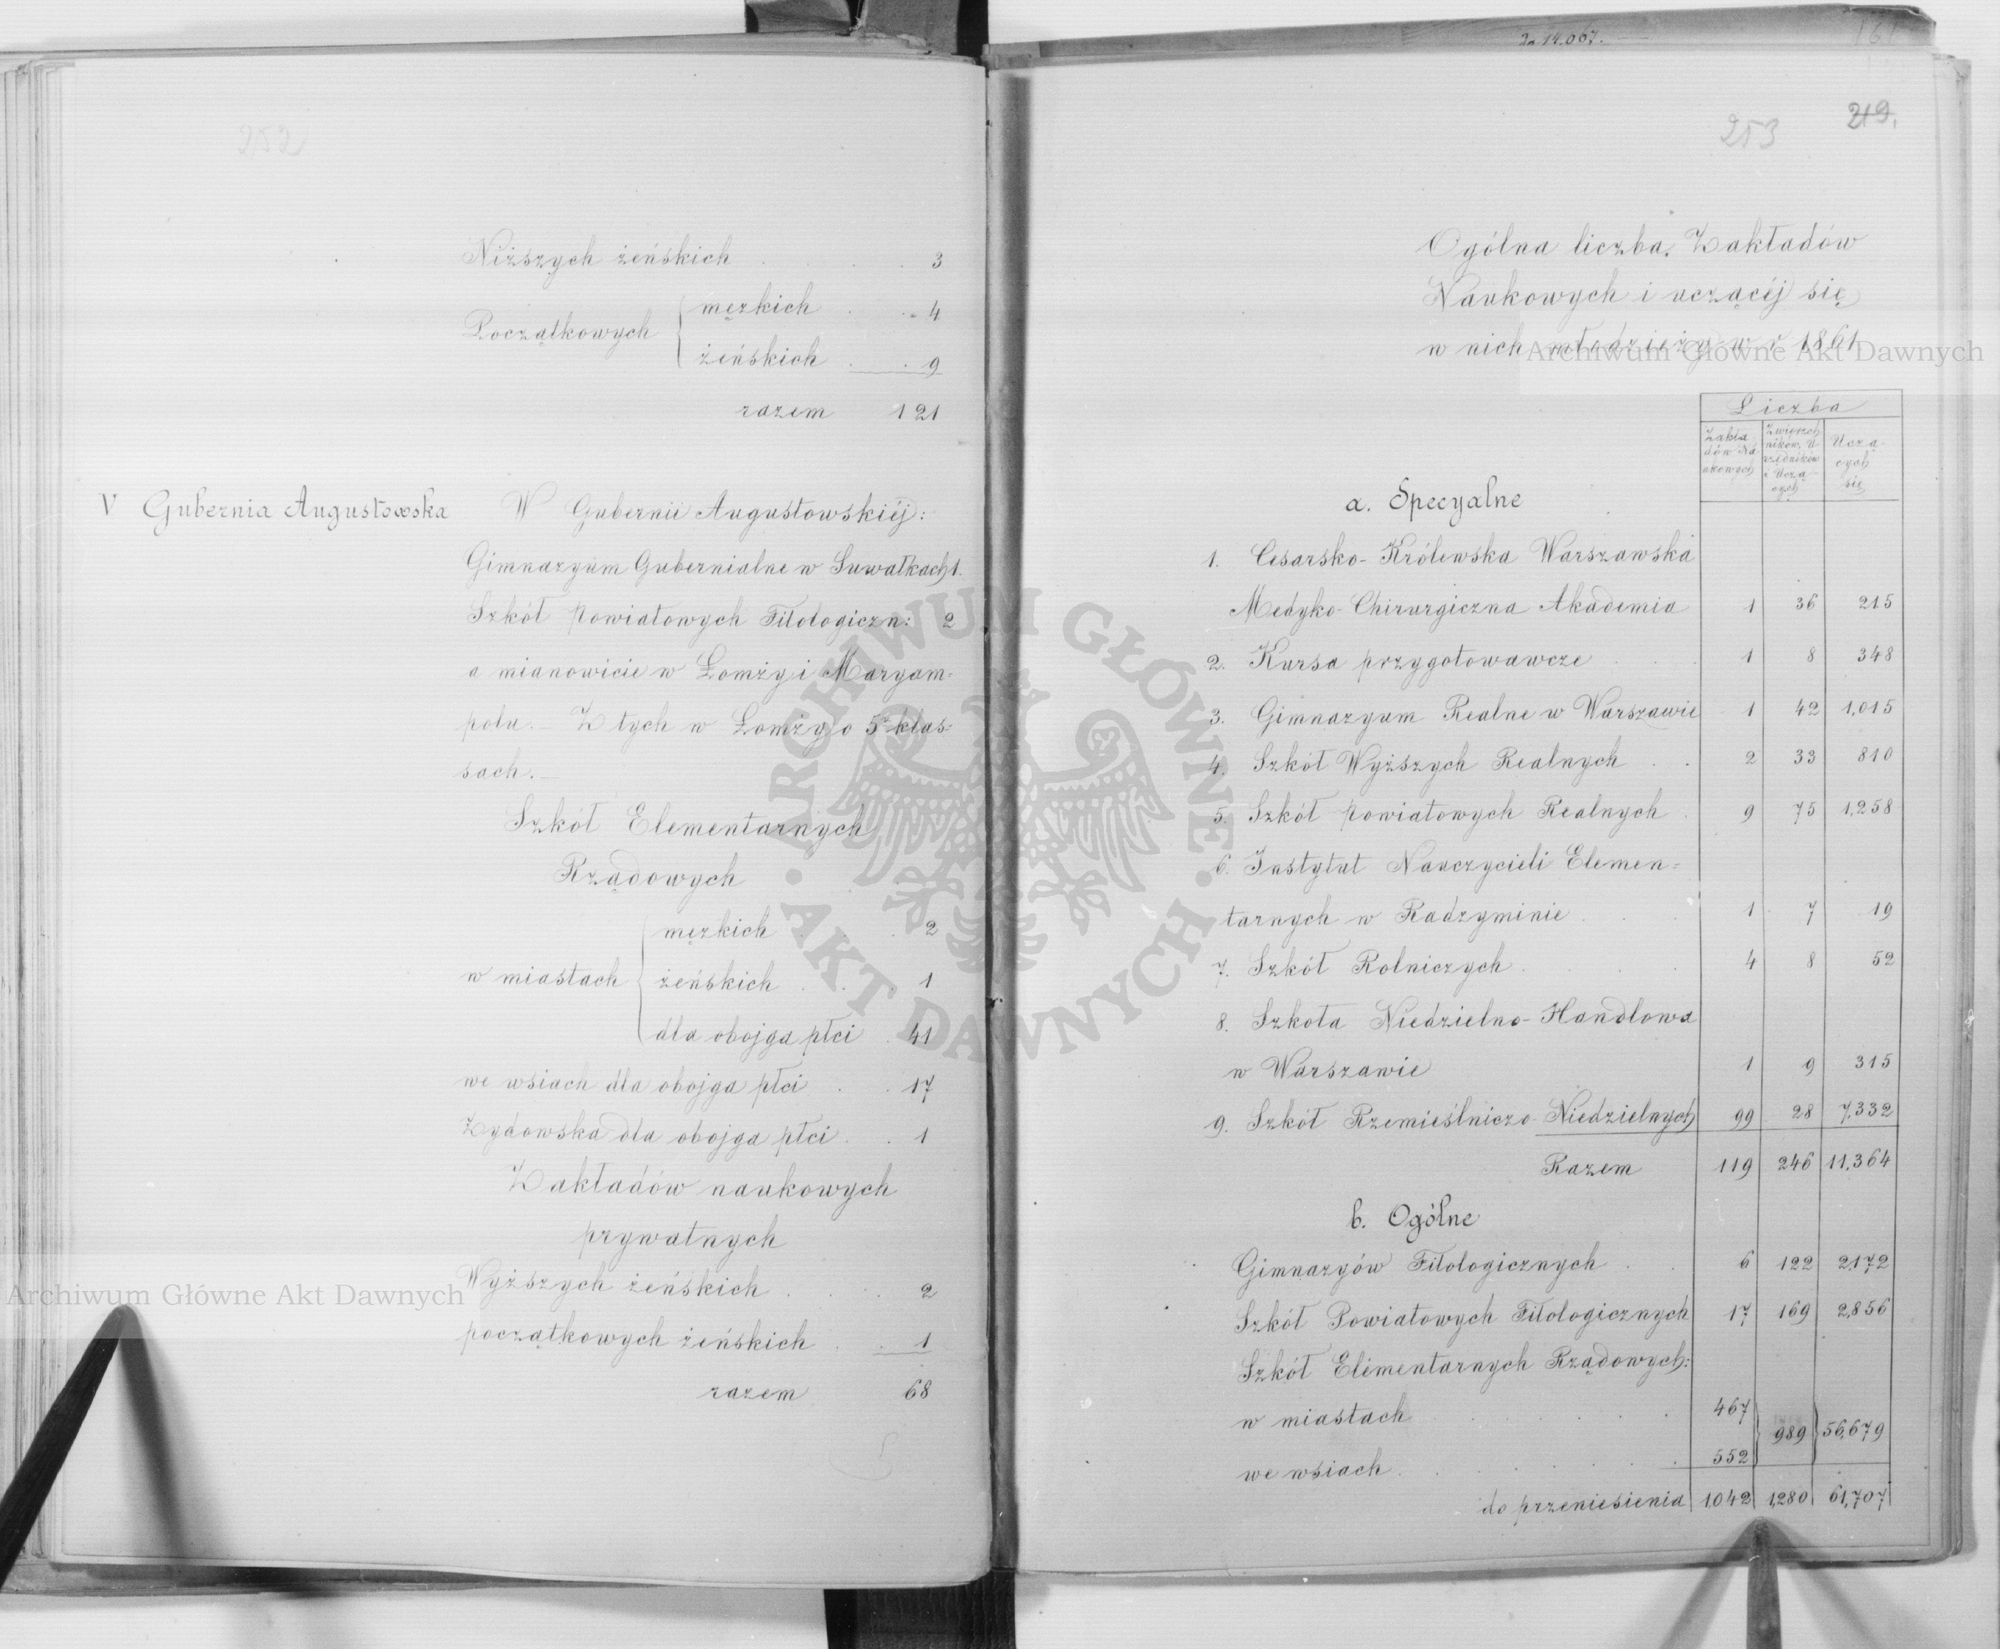 252
Niższych żeńskich . . . . 3
Początkowych { męzkich . . 4
żeńskich . . 9
razem 121
V Gubernia Augustowska
W Gubernii Augustowskiéj:
Gimnazyum Gubernialne w Suwałkach 1.
Szkół Powiatowych Filologiczn: 2
a mianowicie w Łomży i Maryam-
polu. – Z tych w Łomży o 5 klas-
sach. –
Szkół Elementarnych
Rządowych
w miastach { męzkich . . . 2
żeńskich . . . 1
dla obojga płci . 41
we wsiach dla obojga płci . . 17
Żydowska dla obojga płci . . 1
Zakładów naukowych
prywatnych
Wyższych żeńskich . . . . 2
początkowych żeńskich . . 1
razem 68
do 14.067.
161
253 219.
Ogólna liczba Zakładów
Naukowych i uczącéj się
w nich młodzieży w r 1861
Liczba
Zakładów Naukowych
Zwierzchników, Urzędników i Uczących
Uczących się
a. Specyalne
1. Cesarsko-Królewska Warszawska
Medyko-Chirurgiczna Akademia 1 36 215
2. Kursa przygotowawcze . . . 1 8 348
3. Gimnazyum Realne w Warszawie 1 42 1,015
4. Szkół Wyższych Realnych . . 2 33 810
5. Szkół Powiatowych Realnych . 9 75 1,258
6. Instytut Nauczycieli Elemen=
tarnych w Radzyminie . . . 1 7 19
7. Szkół Rolniczych . . . . 4 8 52
8. Szkoła Niedzielno-Handlowa
w Warszawie 1 9 315
9. Szkół Rzemieślniczo-Niedzielnych 99 28 7,332
Razem 119 246 11,364
b. Ogólne
Gimnazyów Filologicznych . . 6 122 2172
Szkół Powiatowych Filologicznych 17 169 2,856
Szkół Elementarnych Rządowych:
w miastach . . . . . . 467
989 56,679
we wsiach . . . . . . 552
do przeniesienia 1,042 1,280 61,707
Archiwum Główne Akt Dawnych
Archiwum Główne Akt Dawnych
ARCHIWUM GŁÓWNE · AKT DAWNYCH ·